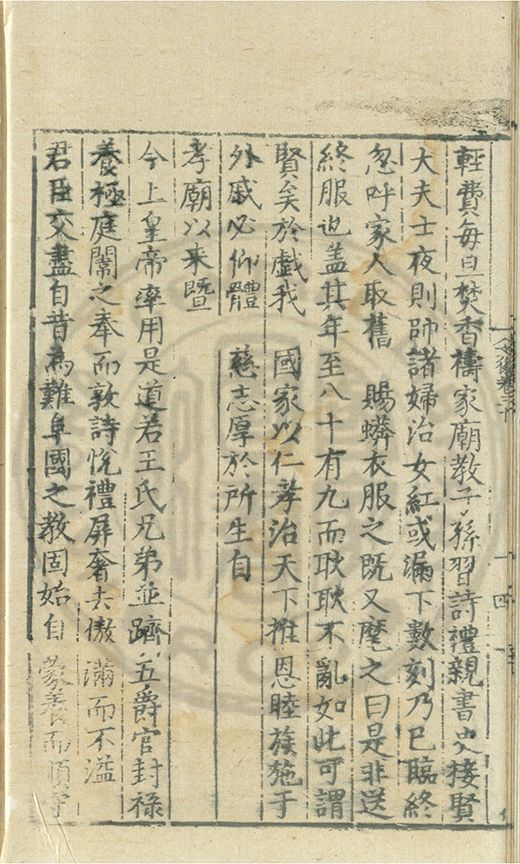 輕費每旦焚香禱家廟教子孫習詩禮親書史接賢
大夫士夜則師諸婦治女紅或漏下數刻乃已臨終
忽呼家人取舊 賜蟒衣服之既又麾之曰是非送
終服也蓋其年至八十有九而耿耿不亂如此可謂
賢矣於戲我 國家以仁孝治天下推恩睦族施于
外戚必仰體 慈志厚於所生自
孝廟以来暨
今上皇帝率用是道君王氏兄弟並躋五爵官封祿
養極庭闈之奉而敦詩悅禮屏奢去傲 滿而不溢
君臣交盡自昔為難阜國之教固始自 蒙養而順守
卷三十
四